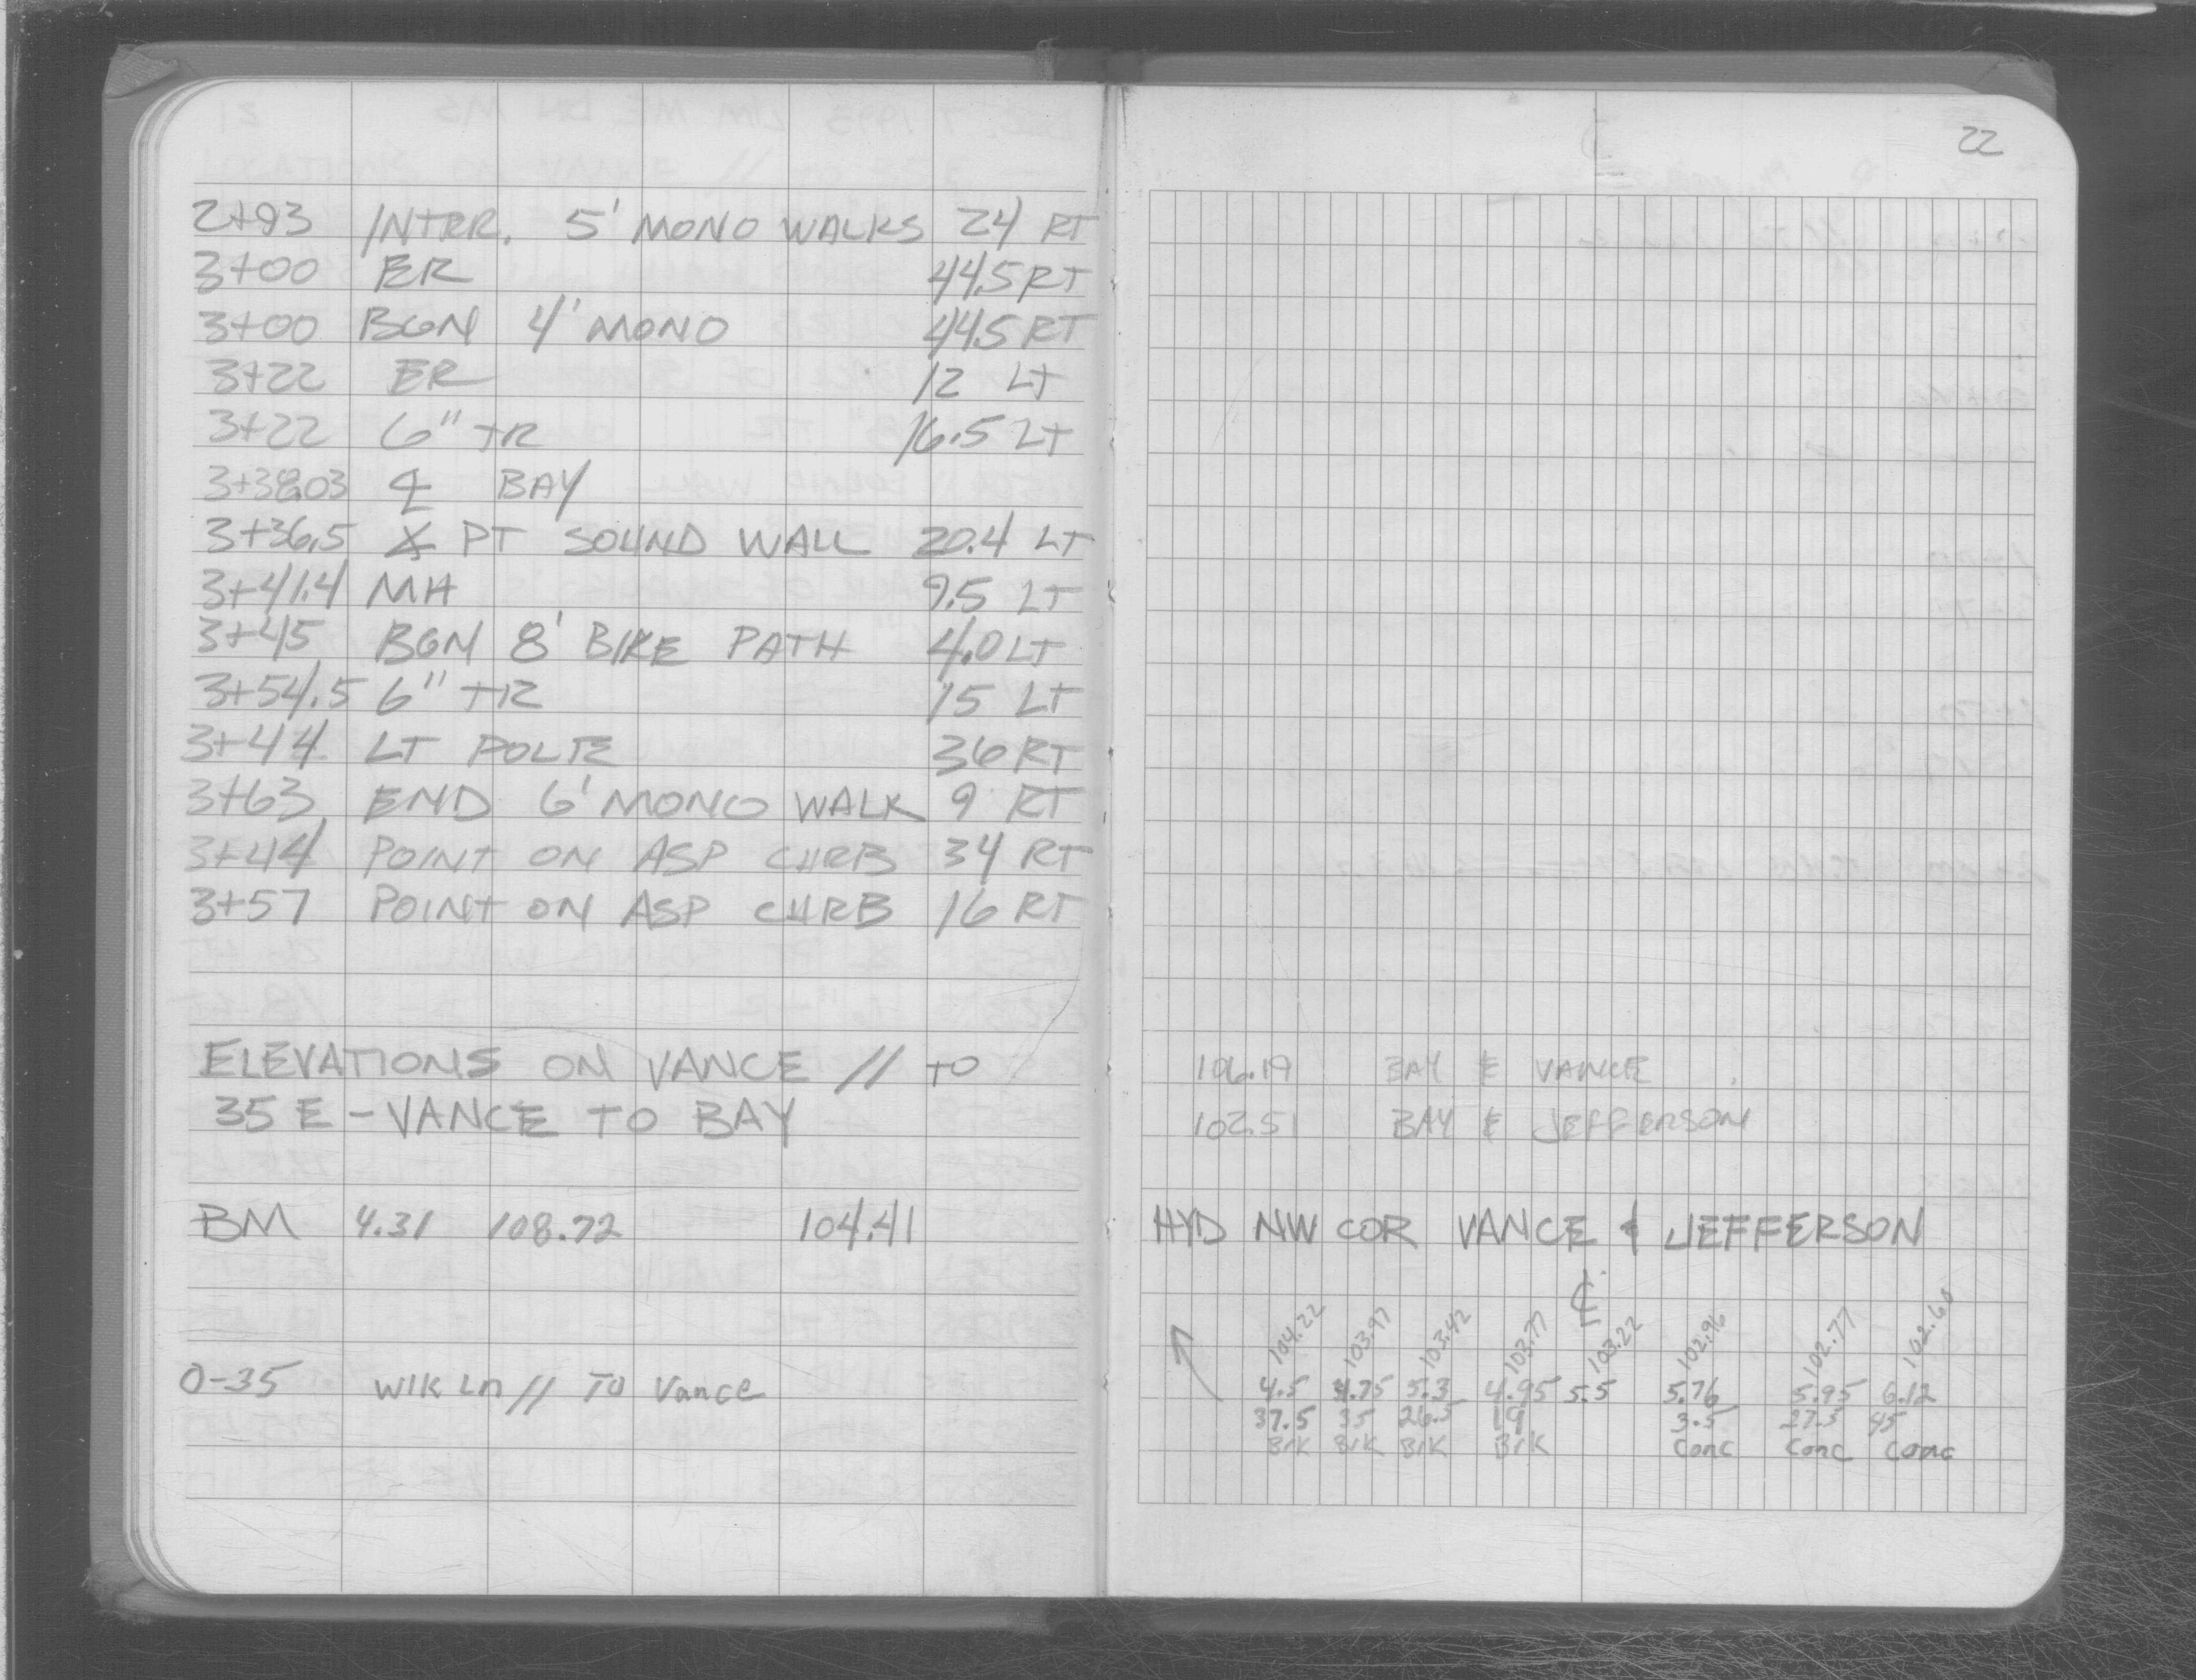 22
2+93 INTRR. 5' MONO WALKS 24 RT
3+00 ER 44.5 RT
3+00 BGN 4' MONO 44.5 RT
3+22 ER 12 LT
3+22 6" TR 16.5 LT
3+38.03 ℄ BAY
3+36.5 ∡ PT SOUND WALL 20.4 LT
3+41.4 MH 9.5 LT
3+45 BGN 8' BIKE PATH 4.0 LT
3+54.5 6" TR 15 LT
3+44 LT POLE 36 RT
3+63 END 6' MONO WALK 9 RT
3+44 POINT ON ASP CURB 34 RT
3+57 POINT ON ASP CURB 16 RT
ELEVATIONS ON VANCE // TO
35 E - VANCE TO BAY
BM 4.31 108.72 104.41
0-35 WlK Ln // To Vance
106.19 BAY & VANCE
102.51 BAY & JEFFERSON
HYD NW COR VANCE & JEFFERSON
℄
104.22 103.97 103.42 103.77 103.22 102.96 102.77 102.60
4.5 4.75 5.3 4.95 5.5 5.76 5.95 6.12
37.5 35 26.5 19 3.5 27.5 45
BlK BlK BlK BlK Conc Conc Conc